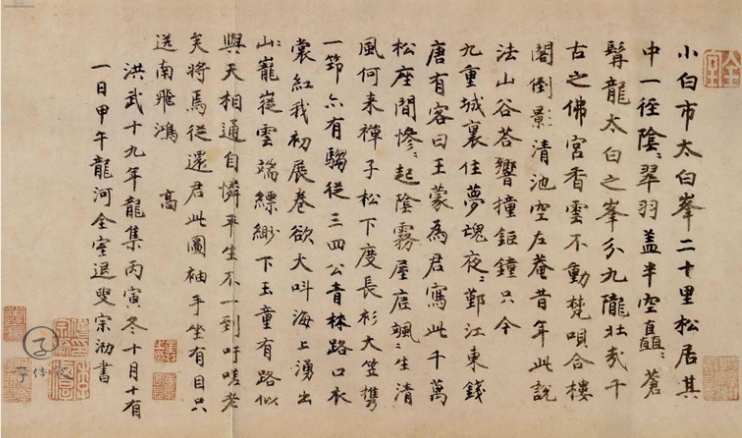 小白市太白峯二十里松居其
中一徑陰〻翠羽盖半空矗〻蒼
髯龍太白之峯分九隴壯哉千
古之佛宮香雲不動梵唄合樓
閣倒影清池空左菴昔年此說
法山谷荅響撞鉅鐘只今
九重城裏住夢魂夜〻鄞江東錢
唐有客曰王蒙為君寫此千萬
松座間慘〻起陰霧屋底颯〻生清
風何来禪子松下度長衫大笠攜
一笻亦有騶從三四公青林路口衣
裳紅我初展卷欲大叫海上湧出
山〻巃嵸雲端縹緲下玉童有路似
與天相通自憐平生不一到吁嗟老
矣將焉從還君此圖袖手坐有目只
送南飛鴻 高
洪武十九年龍集丙寅冬十月十有
一日甲午龍河全室退叟宗泐書
全室